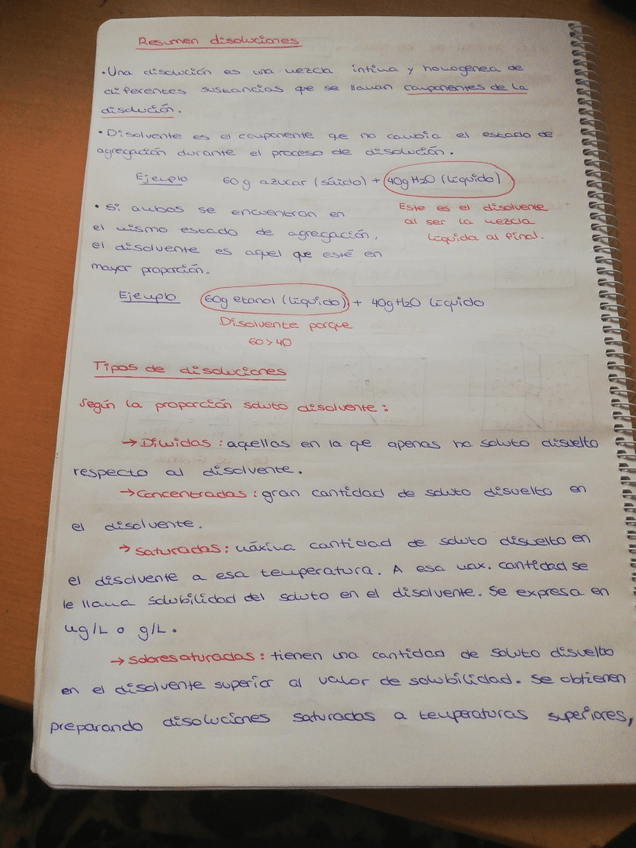 Resumen disoluciones
• Una disolución es una mezcla íntima y homogénea de
diferentes sustancias que se llaman componentes de la
disolución.
• Disolvente es el componente que no cambia el estado de
agregación durante el proceso de disolución.
Ejemplo 60 g azucar (sólido) + 40g H2O (Líquido)
• Si ambos se encuentran en
el mismo estado de agregación,
el disolvente es aquel que esté en
mayor proporción.
Este es el disolvente
al ser la mezcla
líquida al final.
Ejemplo 60g etanol (líquido) + 40g H2O líquido
Disolvente porque
60>40
Tipos de disoluciones
Según la proporción soluto disolvente:
→ Diluidas: aquellas en la que apenas ha soluto disuelto
respecto al disolvente.
→ Concentradas: gran cantidad de soluto disuelto en
el disolvente.
→ Saturadas: máxima cantidad de soluto disuelto en
el disolvente a esa temperatura. A esa max. cantidad se
le llama solubilidad del soluto en el disolvente. Se expresa en
mg/L o g/L.
→ Sobresaturadas: tienen una cantidad de soluto disuelto
en el disolvente superior al valor de solubilidad. Se obtienen
preparando disoluciones saturadas a temperaturas superiores,